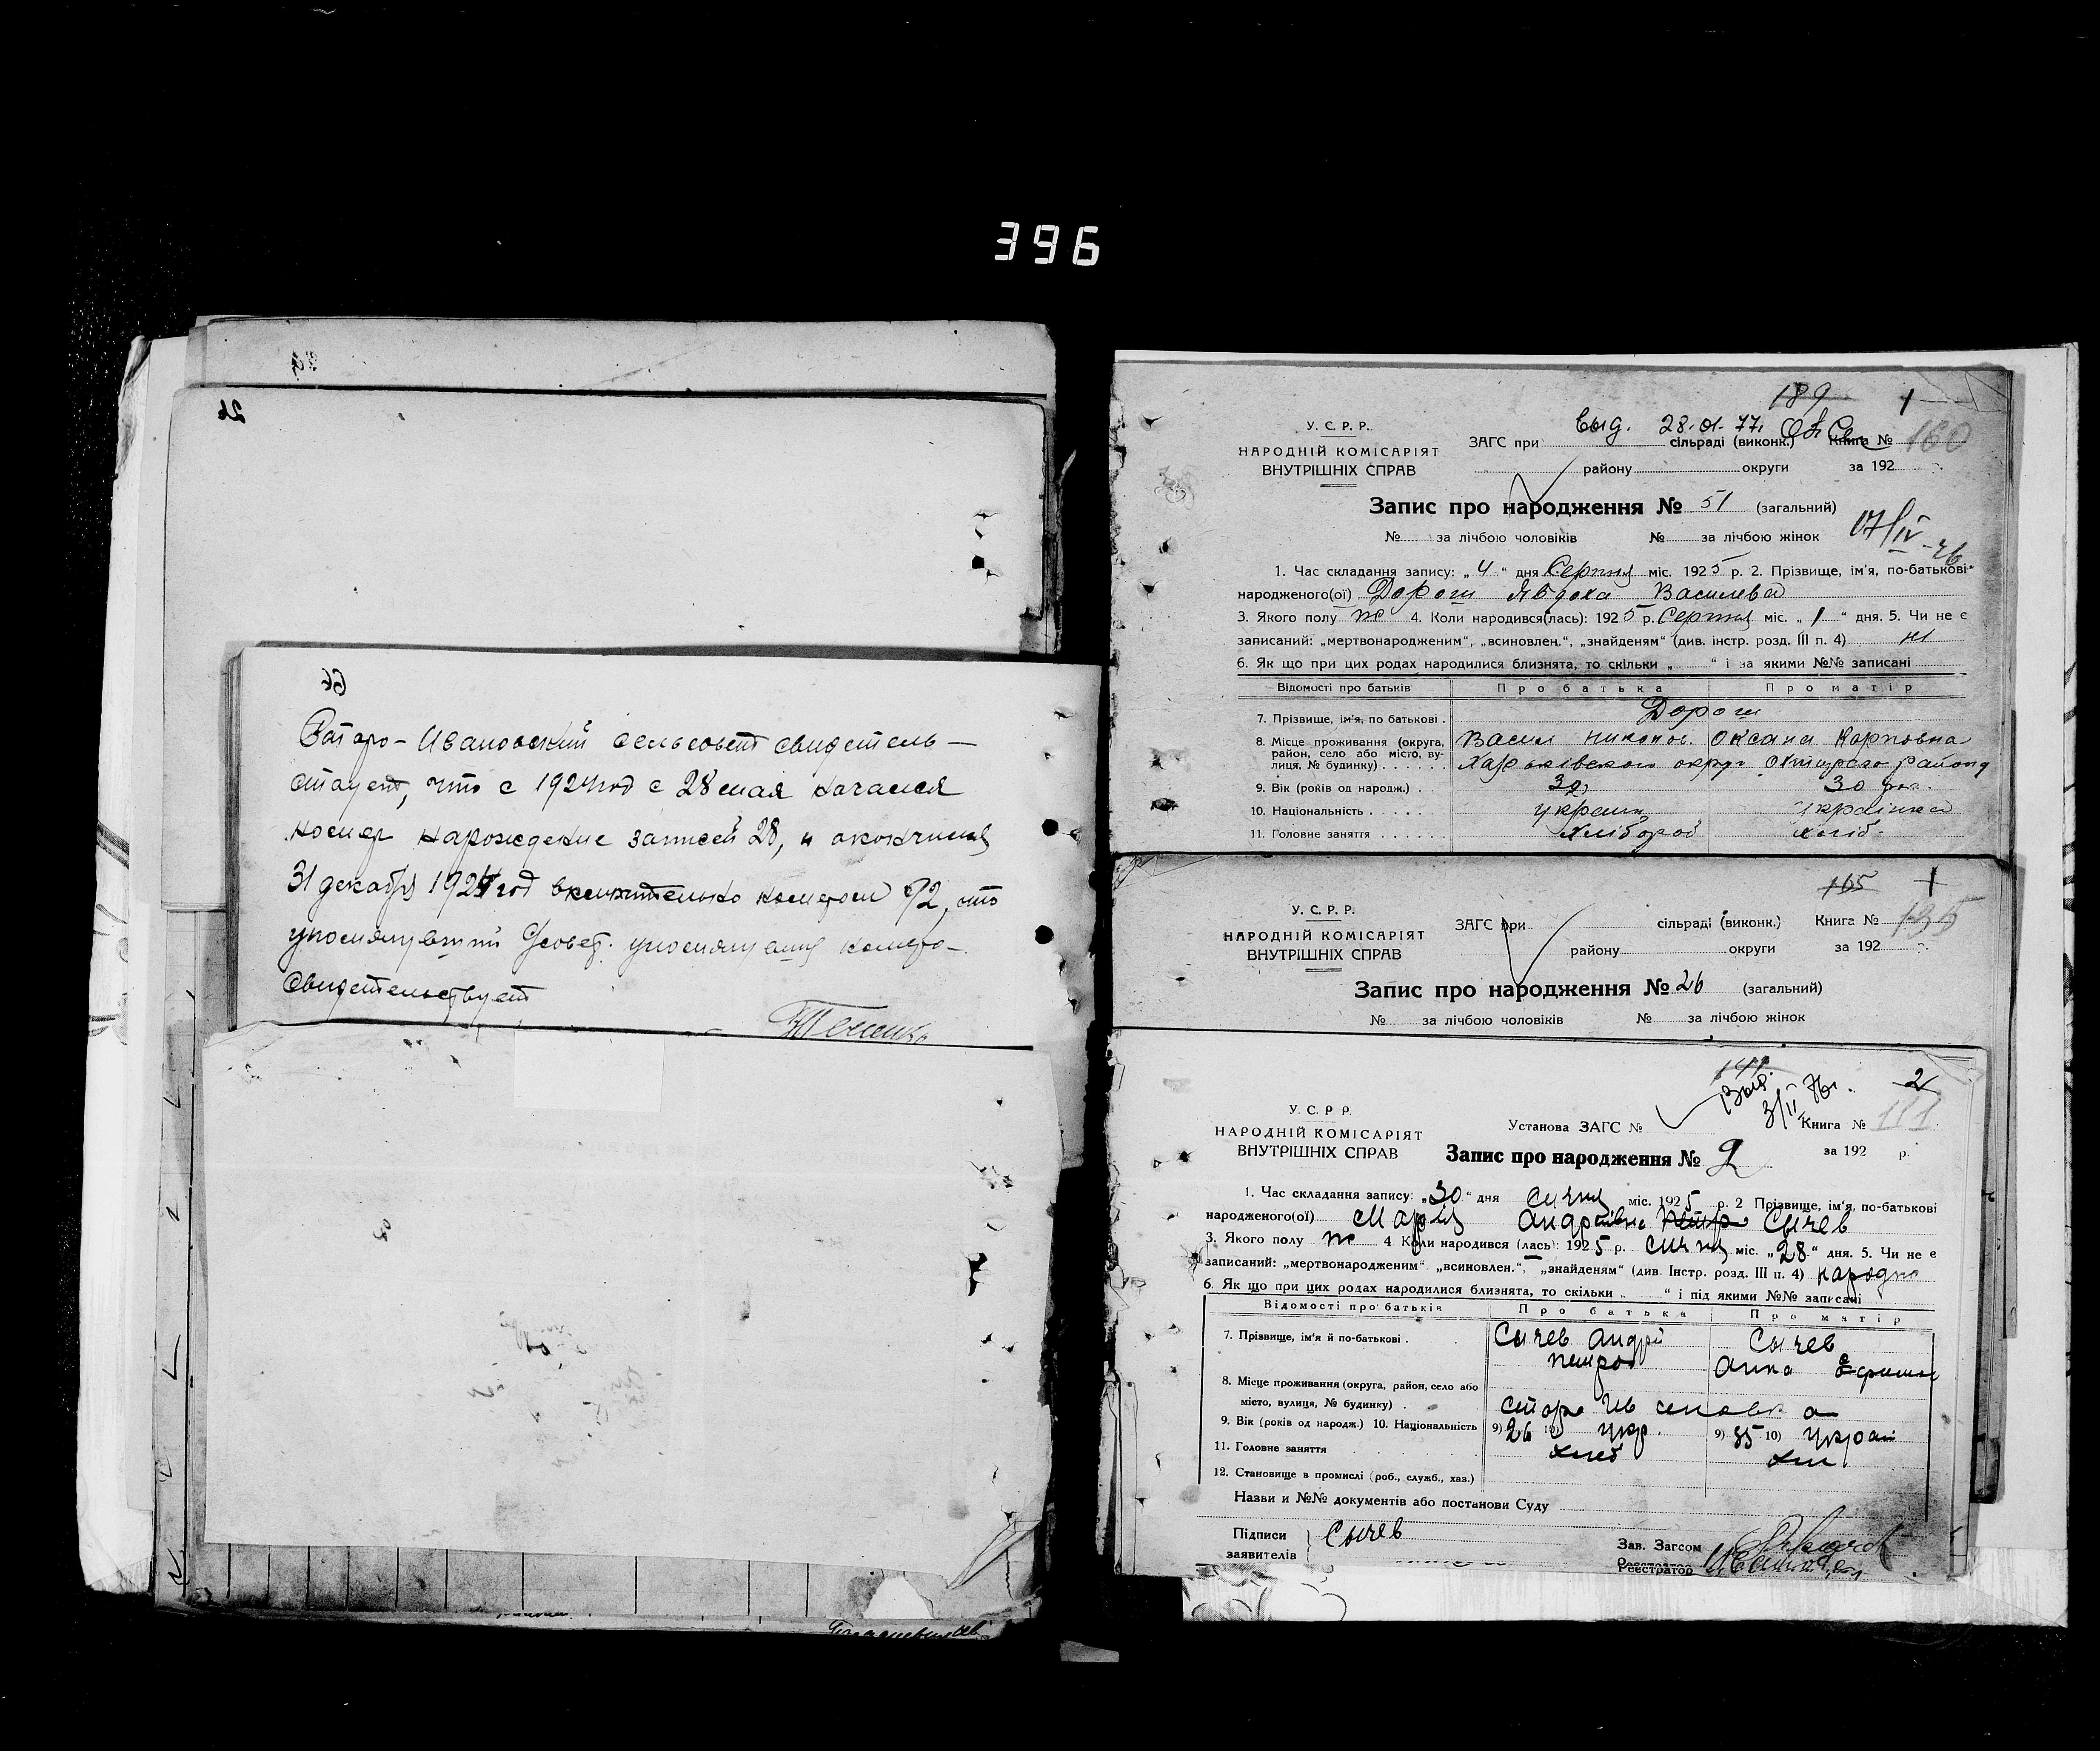 396
26
66
Старо-Ивановский сельсовет свидетель-
ствует, что с 1924 год с 28 мая начался
номер нарождение записей 28, и окончился
31 декабря 1924 год включительно номером 92, что
упомянутый
свидетельствует
189 1
выд. 28.01.77.
У. С. Р. Р.
НАРОДНІЙ КОМІСАРІЯТ
ВНУТРІШНІХ СПРАВ
ЗАГС при сільраді (виконк.) Книга № 160
району округи за 192
Запис про народження № 51 (загальний)
№ за лічбою чоловіків № за лічбою жінок
17/IV-
1. Час складання запису: „4“ дня Серпня міс. 1925 р. 2. Прізвище, ім'я, по-батькові
народженого(ої) Дорош Явдоха Василева
3. Якого полу ж 4. Коли народився(лась): 1925 р. Серпня міс. „1“ дня. 5. Чи не є
записаний: „мертвонародженим“, „всиновлен.“, „знайденям“ (див. інстр. розд. III п. 4) ні
6. Як що при цих родах народилися близнята, то скільки „ “ і за якими №№ записані
Відомості про батьків Про батька Про матір
7. Прізвище, ім'я, по батькові . Дорош
8. Місце проживання (округа, Васил Никонов. Оксана Карповна
район, село або місто, ву-
лиця, № будинку) Харьківского округ району
9. Вік (років од народж.) . 30
10. Національність українка
11. Головне заняття Хлібороб хліб.
165 1
У. С. Р. Р.
НАРОДНІЙ КОМІСАРІЯТ
ВНУТРІШНІХ СПРАВ
ЗАГС при сільраді (виконк.) Книга № 135
району округи за 192
Запис про народження № 26 (загальний)
№ за лічбою чоловіків № за лічбою жінок
141 2
3/II 76г.
У. С. Р. Р.
НАРОДНІЙ КОМІСАРІЯТ
ВНУТРІШНІХ СПРАВ
Установа ЗАГС № Книга № 111
Запис про народження № 2 за 192 р.
1. Час складання запису: „30“ дня Січня міс. 1925 р. 2 Прізвище, ім'я, по-батькові
народженого(ої) Марія Андріївна Сычев
3. Якого полу ж 4 Коли народився (лась): 1925 р. січня міс. „28“ дня. 5. Чи не є
записаний: „мертвонародженим“, „всиновлен.“, „знайденям“ (див. Інстр. розд. III п. 4)
6. Як що при цих родах народилися близнята, то скільки „ “ і під якими №№ записані
Відомості про батьків Про батька Про матір
7. Прізвище, ім'я й по-батькові . Сычев Андрій Сычев
Петров Анна
8. Місце проживання (округа, район, село або
місто, вулиця, № будинку) .
9. Вік (років од народж.) 10. Національність 9) 26 10) укр. 9) 35 10) украї
11. Головне заняття хліб хлі
12. Становище в промислі (роб., служб., хаз.)
Назви и №№ документів або постанови Суду
Підписи
заявителів Сычев
Зав. Загсом
Реєстратор